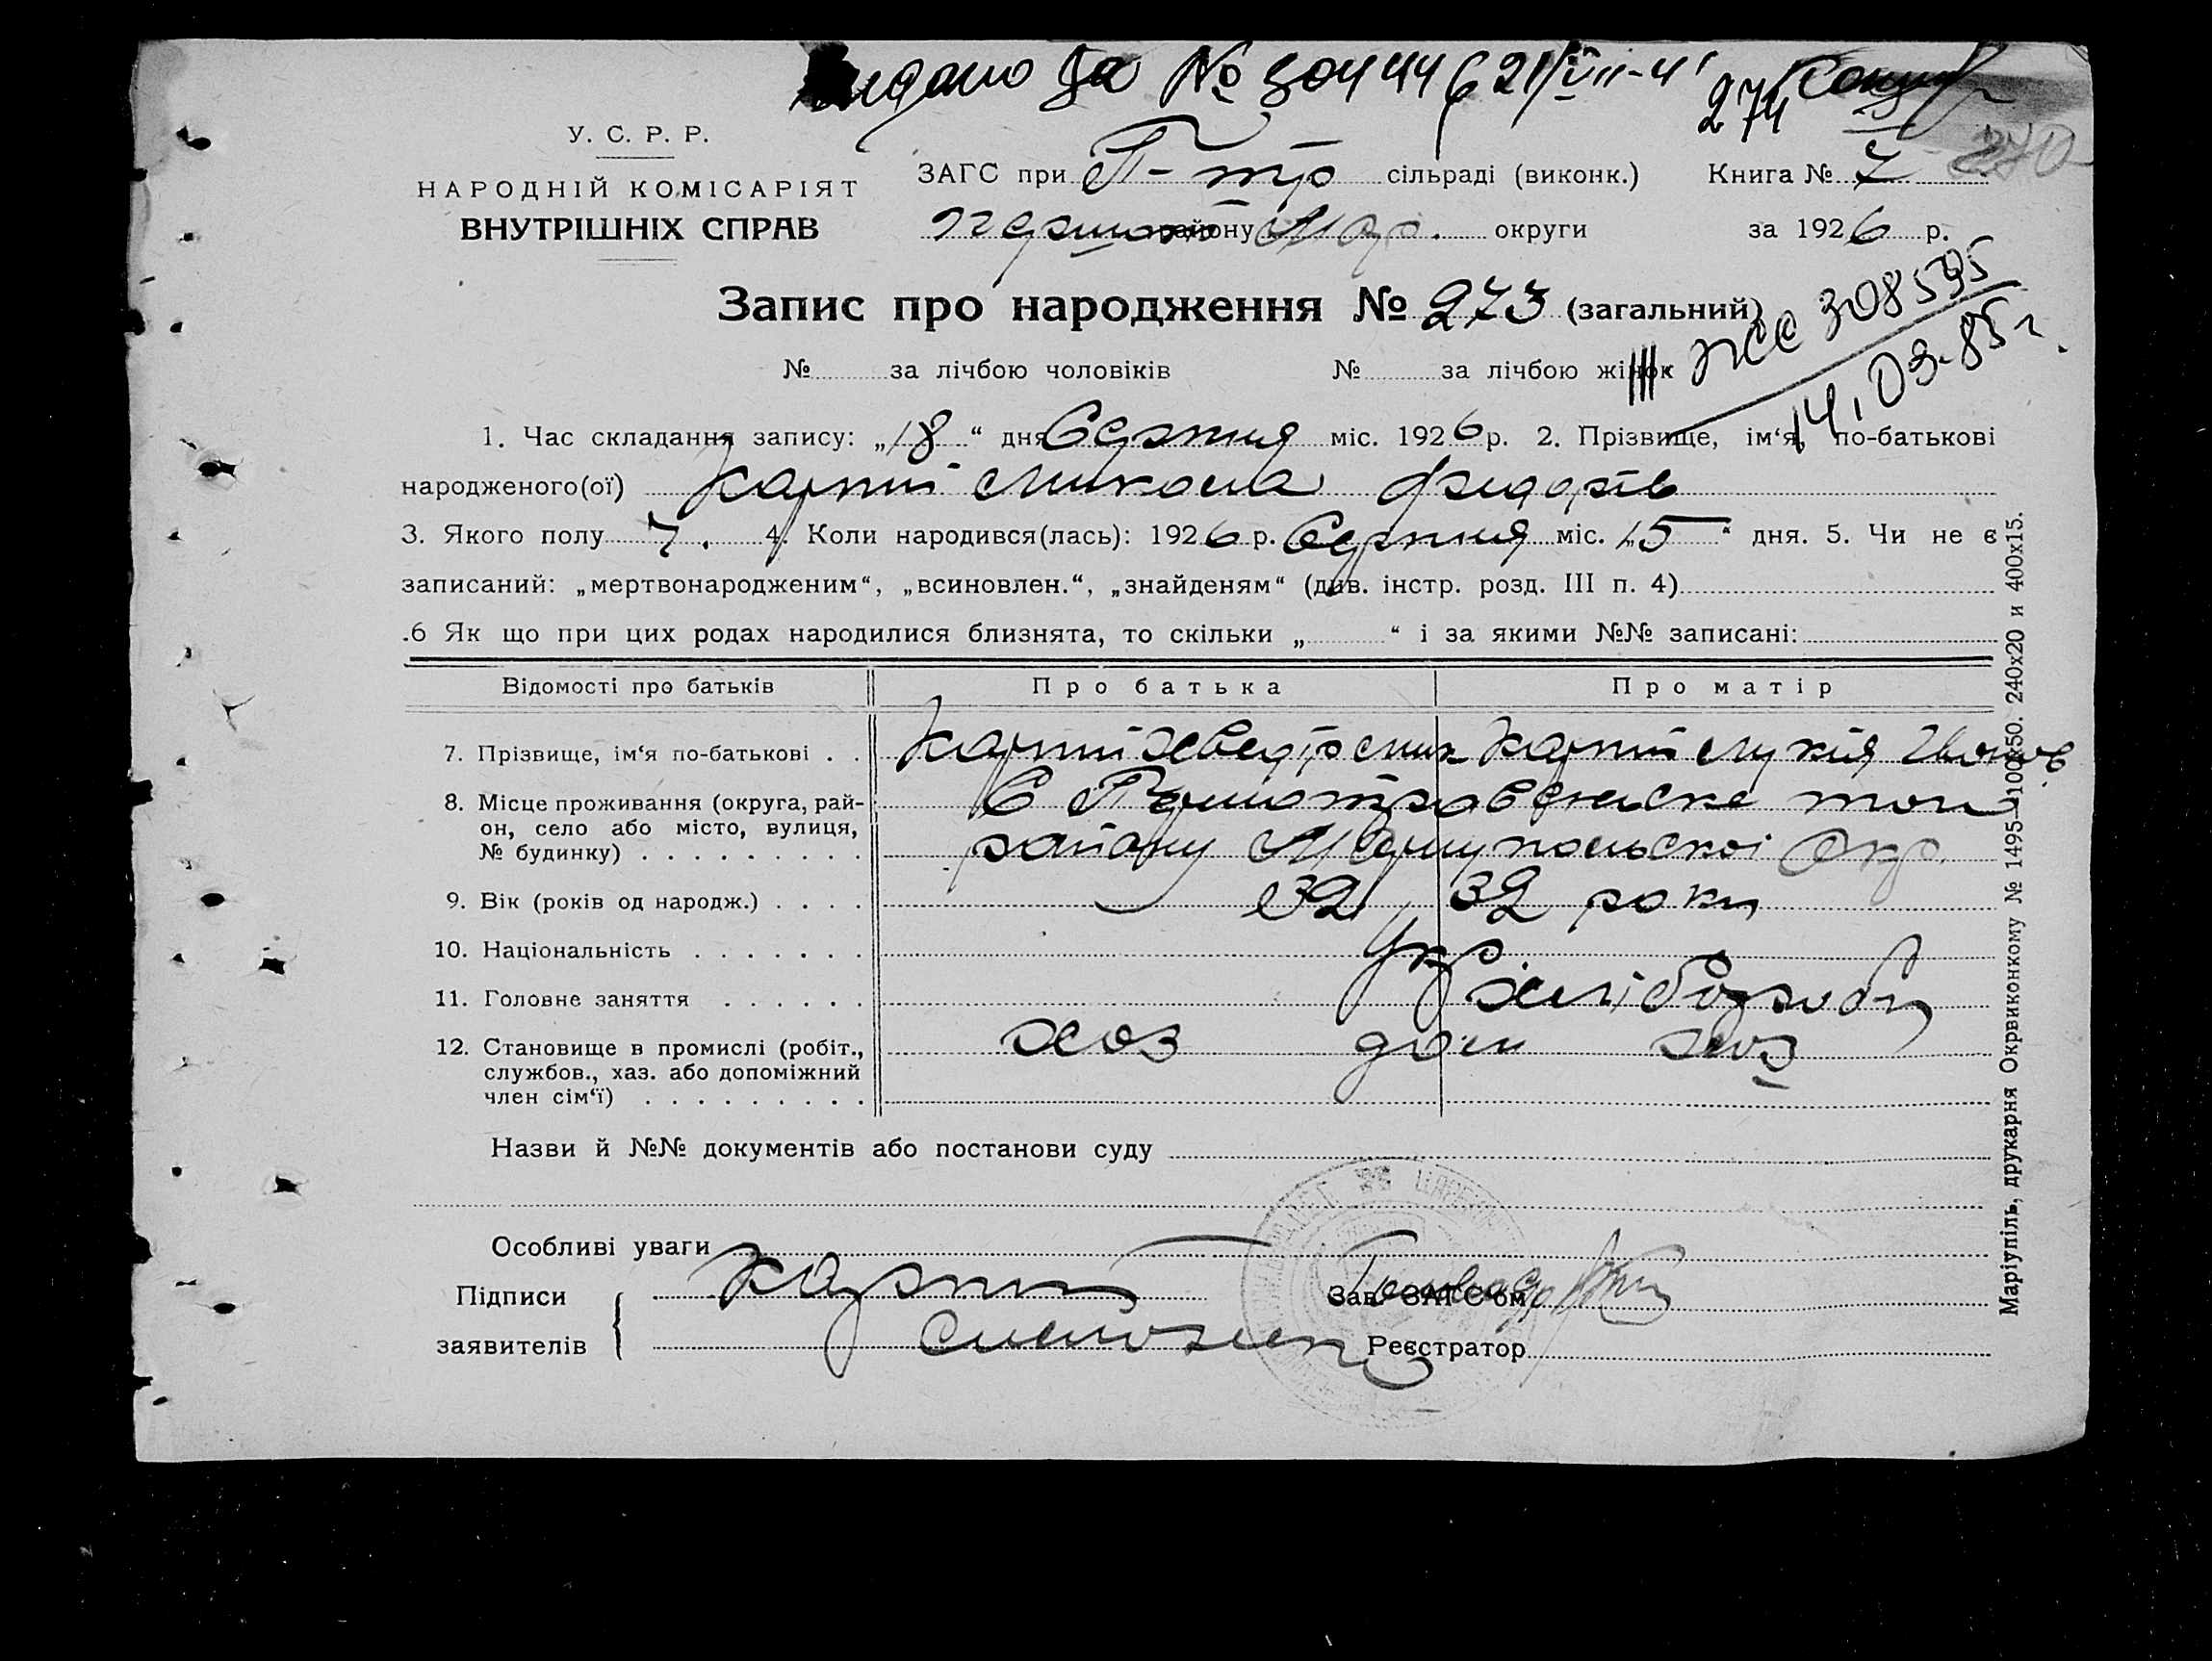 Видано За № 30444 21/VIII-41
274
270
У. С. Р. Р.
НАРОДНІЙ КОМІСАРІЯТ
ВНУТРІШНІХ СПРАВ
ЗАГС при П-тр сільраді (виконк.) Книга № 7
району Мар. округи за 1926 р.
Запис про народження № 273 (загальний)
III ЖС 308595
14.09.85 г.
№ за лічбою чоловіків № за лічбою жінок
1. Час складання запису: „18“ дня Серпня міс. 1926 р. 2. Прізвище, ім‘я, по-батькові
народженого(ої) Карпій Микола
3. Якого полу Ч. 4. Коли народився(лась): 1926 р. Серпня міс. „15“ дня. 5. Чи не є
записаний: „мертвонародженим“, „всиновлен.“, „знайденям“ (див. інстр. розд. III п. 4)
.6 Як що при цих родах народилися близнята, то скільки „ “ і за якими №№ записані:
Відомості про батьків Про батька Про матір
7. Прізвище, ім‘я по-батькові . . Карпій Хведір Мик Карпій Лукія Іванов
8. Місце проживання (округа, рай-
он, село або місто, вулиця,
№ будинку) . . . . . . . . .
С
району Маріупольскоі Окр.
9. Вік (років од народж.) . . . . 32 32 роки
10. Національність . . . . . . . Укр
11. Головне заняття . . . . . . хліборобі
12. Становище в промислі (робіт.,
службов., хаз. або допоміжний
член сім‘ї) . . . . . . . . .
хоз дом хоз
Назви й №№ документів або постанови суду
Особливі уваги
Підписи Карпій Зав. ЗАГС‘ом
заявителів Реєстратор
Маріупіль, друкарня Окрвиконкому № 1495—100х50. 240х20 и 400х15.